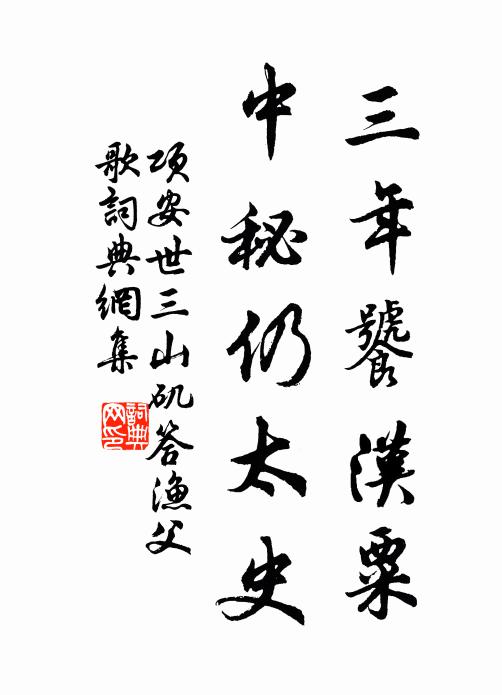 三年饕漢粟
中秘仍太史
項安世三山矶答漁父
歌詞典網集
詞典
网印